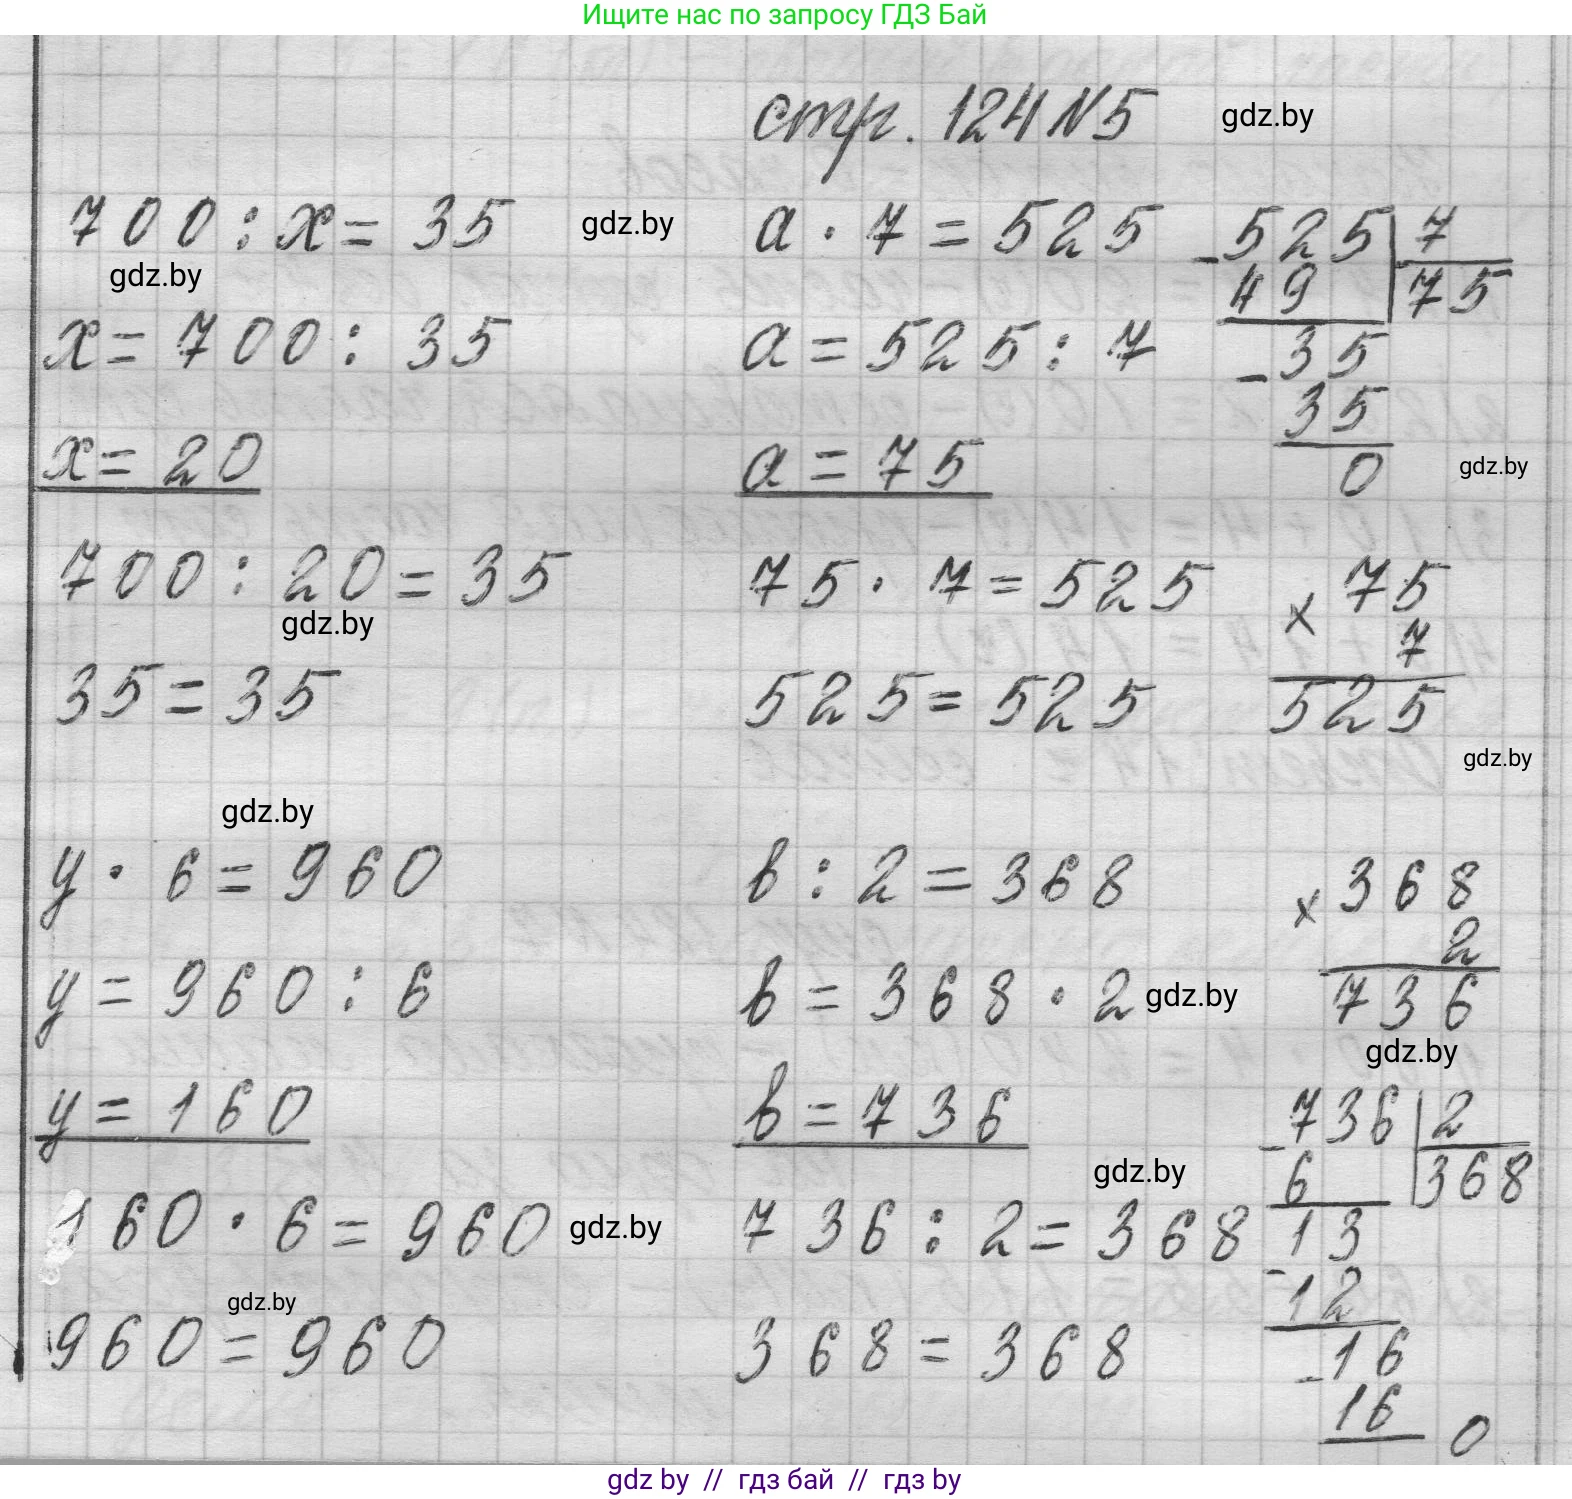 Ищите нас по запросу ГДЗ Бай
стр. 124 №5
gdz.by
700 : x = 35
gdz.by
x = 700 : 35
x = 20
700 : 20 = 35
gdz.by
35 = 35
gdz.by
a · 7 = 525
a = 525 : 7
a = 75
75 · 7 = 525
525 = 525
- 525 | 7
49 | 75
- 35
35
0
gdz.by
x 75
7
525
gdz.by
gdz.by
y · 6 = 960
y = 960 : 6
y = 160
160 · 6 = 960
gdz.by
gdz.by
960 = 960
в : 2 = 368
в = 368 · 2
gdz.by
в = 736
gdz.by
736 : 2 = 368
368 = 368
x 368
2
736
gdz.by
- 736 | 2
6 | 368
13
- 12
- 16
16
0
gdz by // гдз бай // гдз by